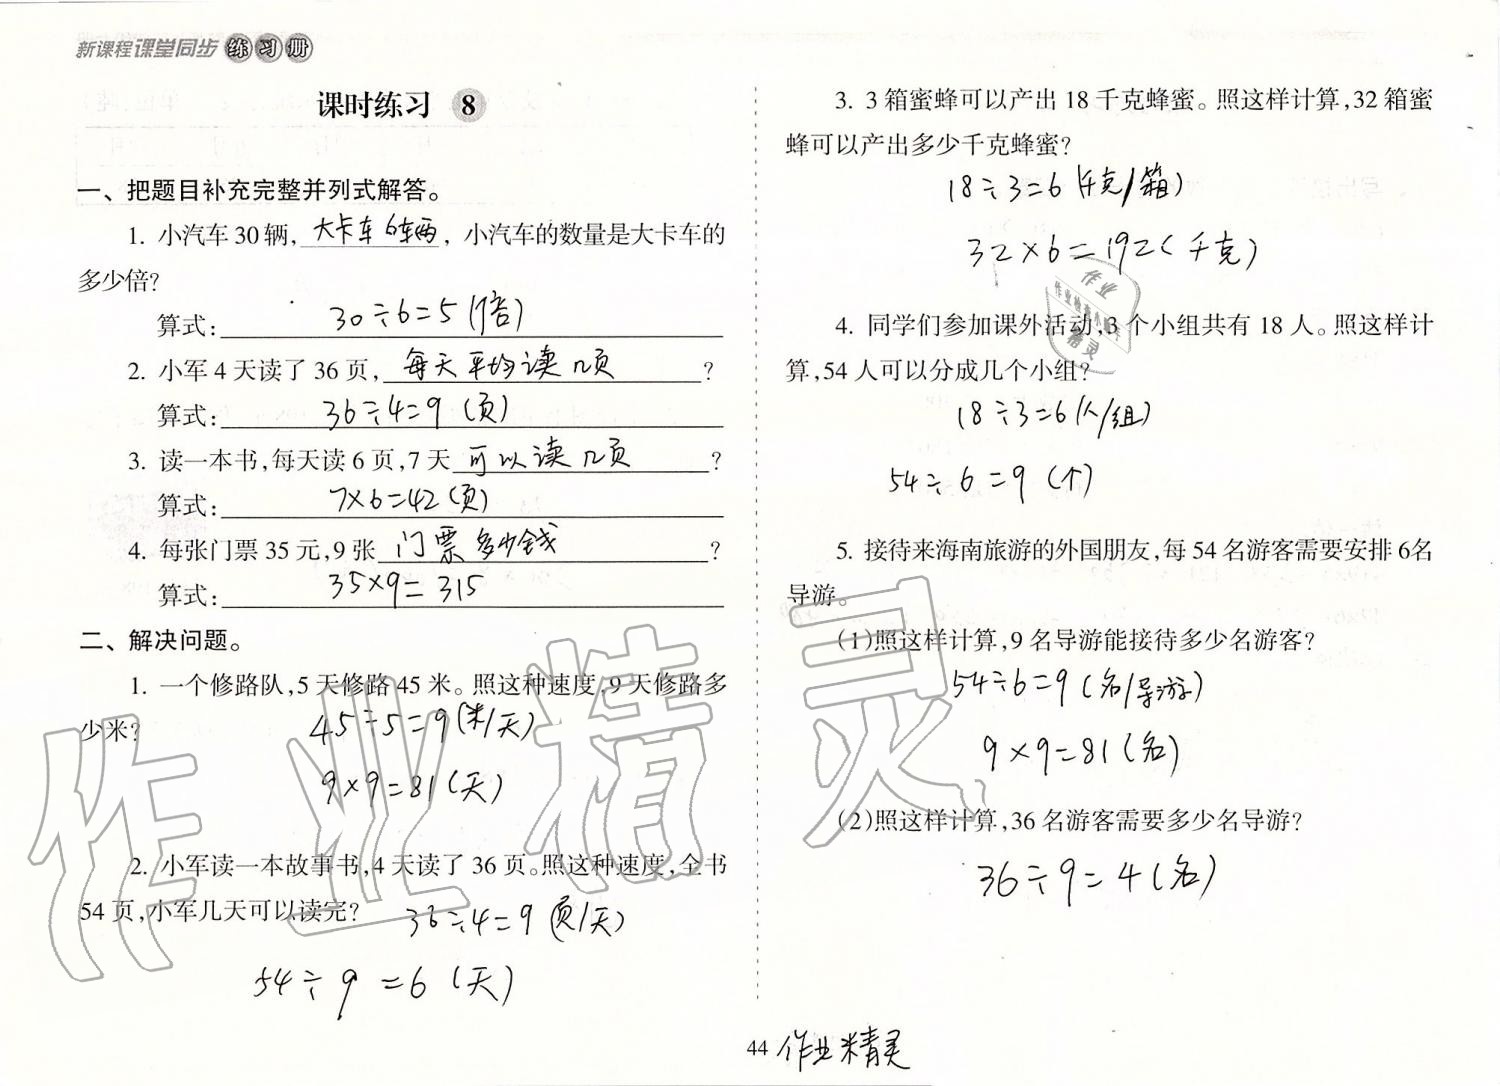 新课程课堂同步练习册
课时练习 8
一、把题目补充完整并列式解答。
1. 小汽车30辆,大卡车6车两, 小汽车的数量是大卡车的
多少倍?
算式: 30÷6=5(倍)
2. 小军4天读了36页, 每天平均读几页?
算式: 36÷4=9(页)
3. 读一本书,每天读6页,7天可以读几页?
算式: 7×6=42(页)
4. 每张门票35元,9张门票多少钱?
算式: 35×9=315
二、解决问题。
1. 一个修路队,5天修路45米。照这种速度,9天修路多
少米?
45÷5=9(米/天)
9×9=81(天)
2. 小军读一本故事书,4天读了36页。照这种速度,全书
54页,小军几天可以读完?
36÷4=9(页/天)
54÷9=6(天)
3. 3箱蜜蜂可以产出18千克蜂蜜。照这样计算,32箱蜜
蜂可以产出多少千克蜂蜜?
18÷3=6(千克/箱)
32×6=192(千克)
4. 同学们参加课外活动,3个小组共有18人。照这样计
算,54人可以分成几个小组?
18÷3=6(人/组)
54÷6=9(个)
5. 接待来海南旅游的外国朋友,每54名游客需要安排6名
导游。
(1)照这样计算,9名导游能接待多少名游客?
54÷6=9(名/导游)
9×9=81(名)
(2)照这样计算,36名游客需要多少名导游?
36÷9=4(名)
44
作业精灵
作业精灵